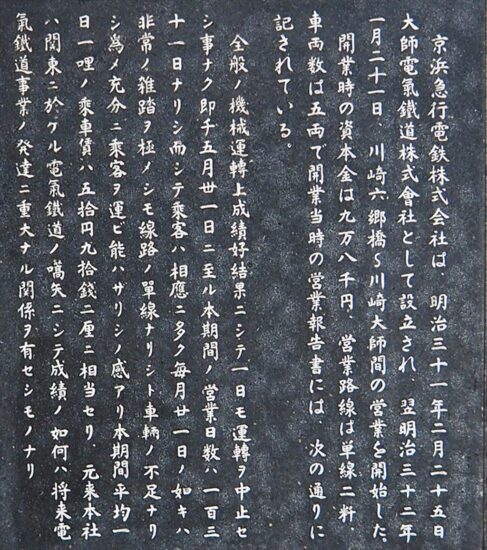 京浜急行電鉄株式会社は、明治三十一年二月二十五日
大師電氣鐵道株式會社として設立され、翌明治三十二年
一月二十一日、川崎六郷橋~川崎大師間の営業を開始した。
開業時の資本金は九万八千円、営業路線は単線二粁
車両数は五両で開業当時の営業報告書には、次の通りに
記されている。
全般ノ機械運轉上成績好結果ニシテ一日モ運轉ヲ中止セ
シ事ナク即チ五月丗一日ニ至ル本期間ノ営業日数ハ一百三
十一日ナリシ而シテ乗客ハ相應ニ多ク毎月廿一日ノ如キハ
非常ノ雑踏ヲ極メシモ線路ノ單線ナリシト車輌ノ不足ナリ
シ爲メ充分ニ乗客ヲ運ビ能ハサリシノ感アリ本期間平均一
日一哩ノ乗車賃ハ五拾円九拾錢二厘ニ相当セリ、元来本社
ハ関東ニ於ケル電氣鐵道ノ嚆矢ニシテ成績ノ如何ハ将来電
氣鐵道事業ノ発達ニ重大ナル関係ヲ有セシモノナリ